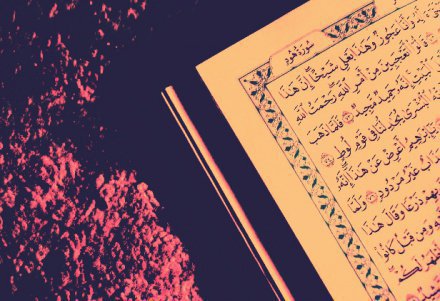 سُورَةُ هُودٍ
وَأَنَا۠ عَجُوزٌ وَهَٰذَا بَعْلِى شَيْخًا إِنَّ هَٰذَا
قَالُوٓا۟ أَتَعْجَبِينَ مِنْ أَمْرِ ٱللَّهِ رَحْمَتُ ٱللَّهِ
ٱلْبَيْتِ إِنَّهُۥ حَمِيدٌ مَّجِيدٌ ۝ فَلَمَّا ذَهَبَ
ٱلْبُشْرَىٰ يُجَٰدِلُنَا فِى قَوْمِ لُوطٍ
إِبْرَٰهِيمُ أَعْرِضْ عَنْ هَٰذَآ إِنَّهُۥ
عَذَابٌ غَيْرُ مَرْدُودٍ ۝ وَلَمَّا
بِهِمْ ذَرْعًا وَقَالَ هَٰذَا
وَمِن قَبْلُ كَانُوا۟
أَطْهَرُ لَكُمْ